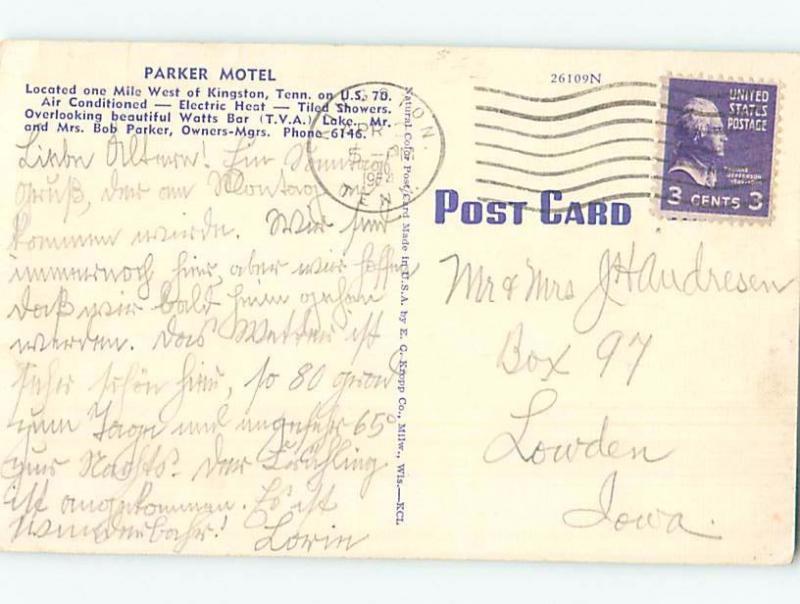 PARKER MOTEL
Located one Mile West of Kingston, Tenn. on U.S. 70.
Air Conditioned — Electric Heat — Tiled Showers.
Overlooking beautiful Watts Bar (T.V.A.) Lake. Mr.
and Mrs. Bob Parker, Owners-Mgrs. Phone 6146.
Liebe Altern! Ein Sonntag
gruß, der am Montag an
kommen würde. Wir sin
immernoch hier, aber wir hoffen
daß wir bald heim gehen
werden. Das Wetter ist
sehr schön hier, so 80 grad
zum Tage und ungefähr 65°
zur Nachts. Der Frühling
ist angekommen. Es ist
wunderbahr! Lorin
Natural Color Post Card Made in U.S.A. by E. C. Kropp Co., Milw., Wis.—KCL
26109N
UNITED
STATES
POSTAGE
3 CENTS 3
POST CARD
Mr & Mrs J H Andresen
Box 97
Lowden
Iowa.